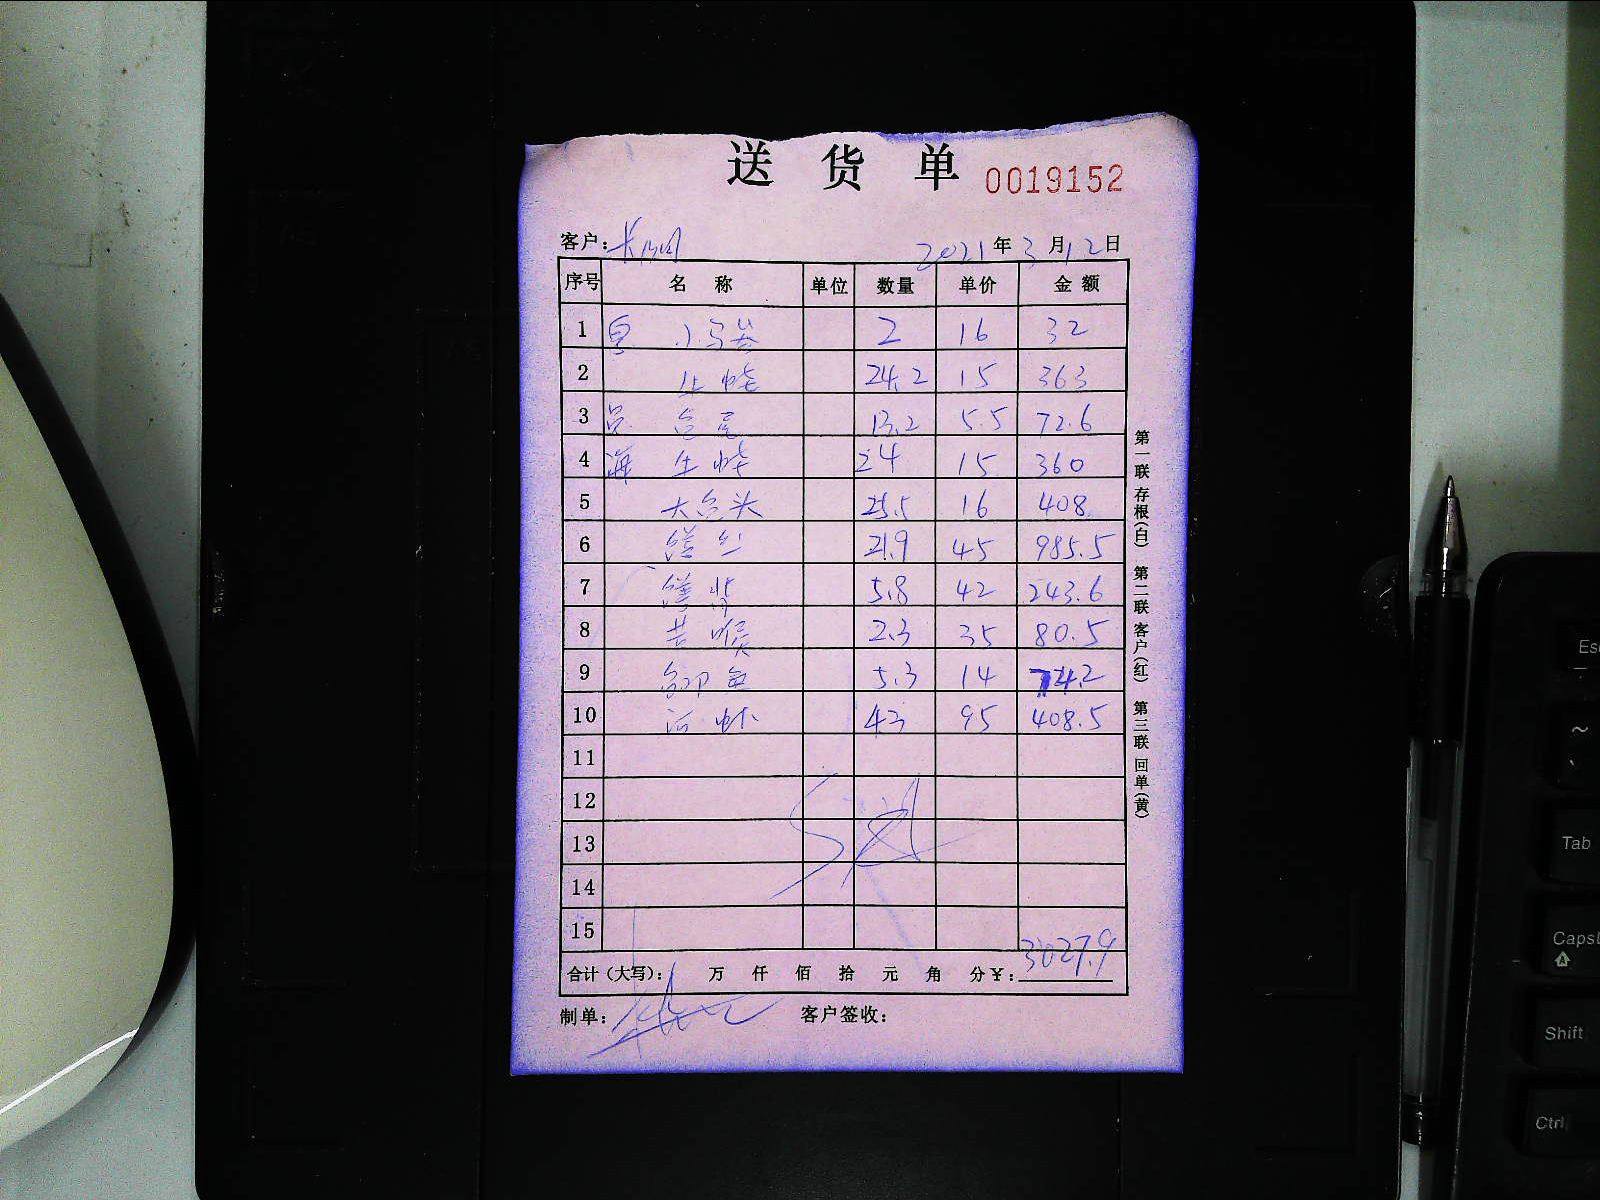 送 货 单 0019152
客户： 2021 年 3 月 12 日
序号 名 称 单位 数量 单价 金 额
1 2 16 32
2 24.2 15 363
3 13.2 5.5 72.6
4 海 生蚝 24 15 360
5 大鱼头 25.5 16 408
6 21.9 45 985.5
7 5.8 42 243.6
8 2.3 35 80.5
9 鱼 5.3 14 74.2
10 河虾 4.3 95 408.5
11
12
13
14
15
合计（大写）： 万 仟 佰 拾 元 角 分￥：3027.9
制单： 客户签收：
第一联 存根（白） 第二联 客户（红） 第三联 回单（黄）
Esc
~
`
Tab
CapsL
Shift
Ctrl